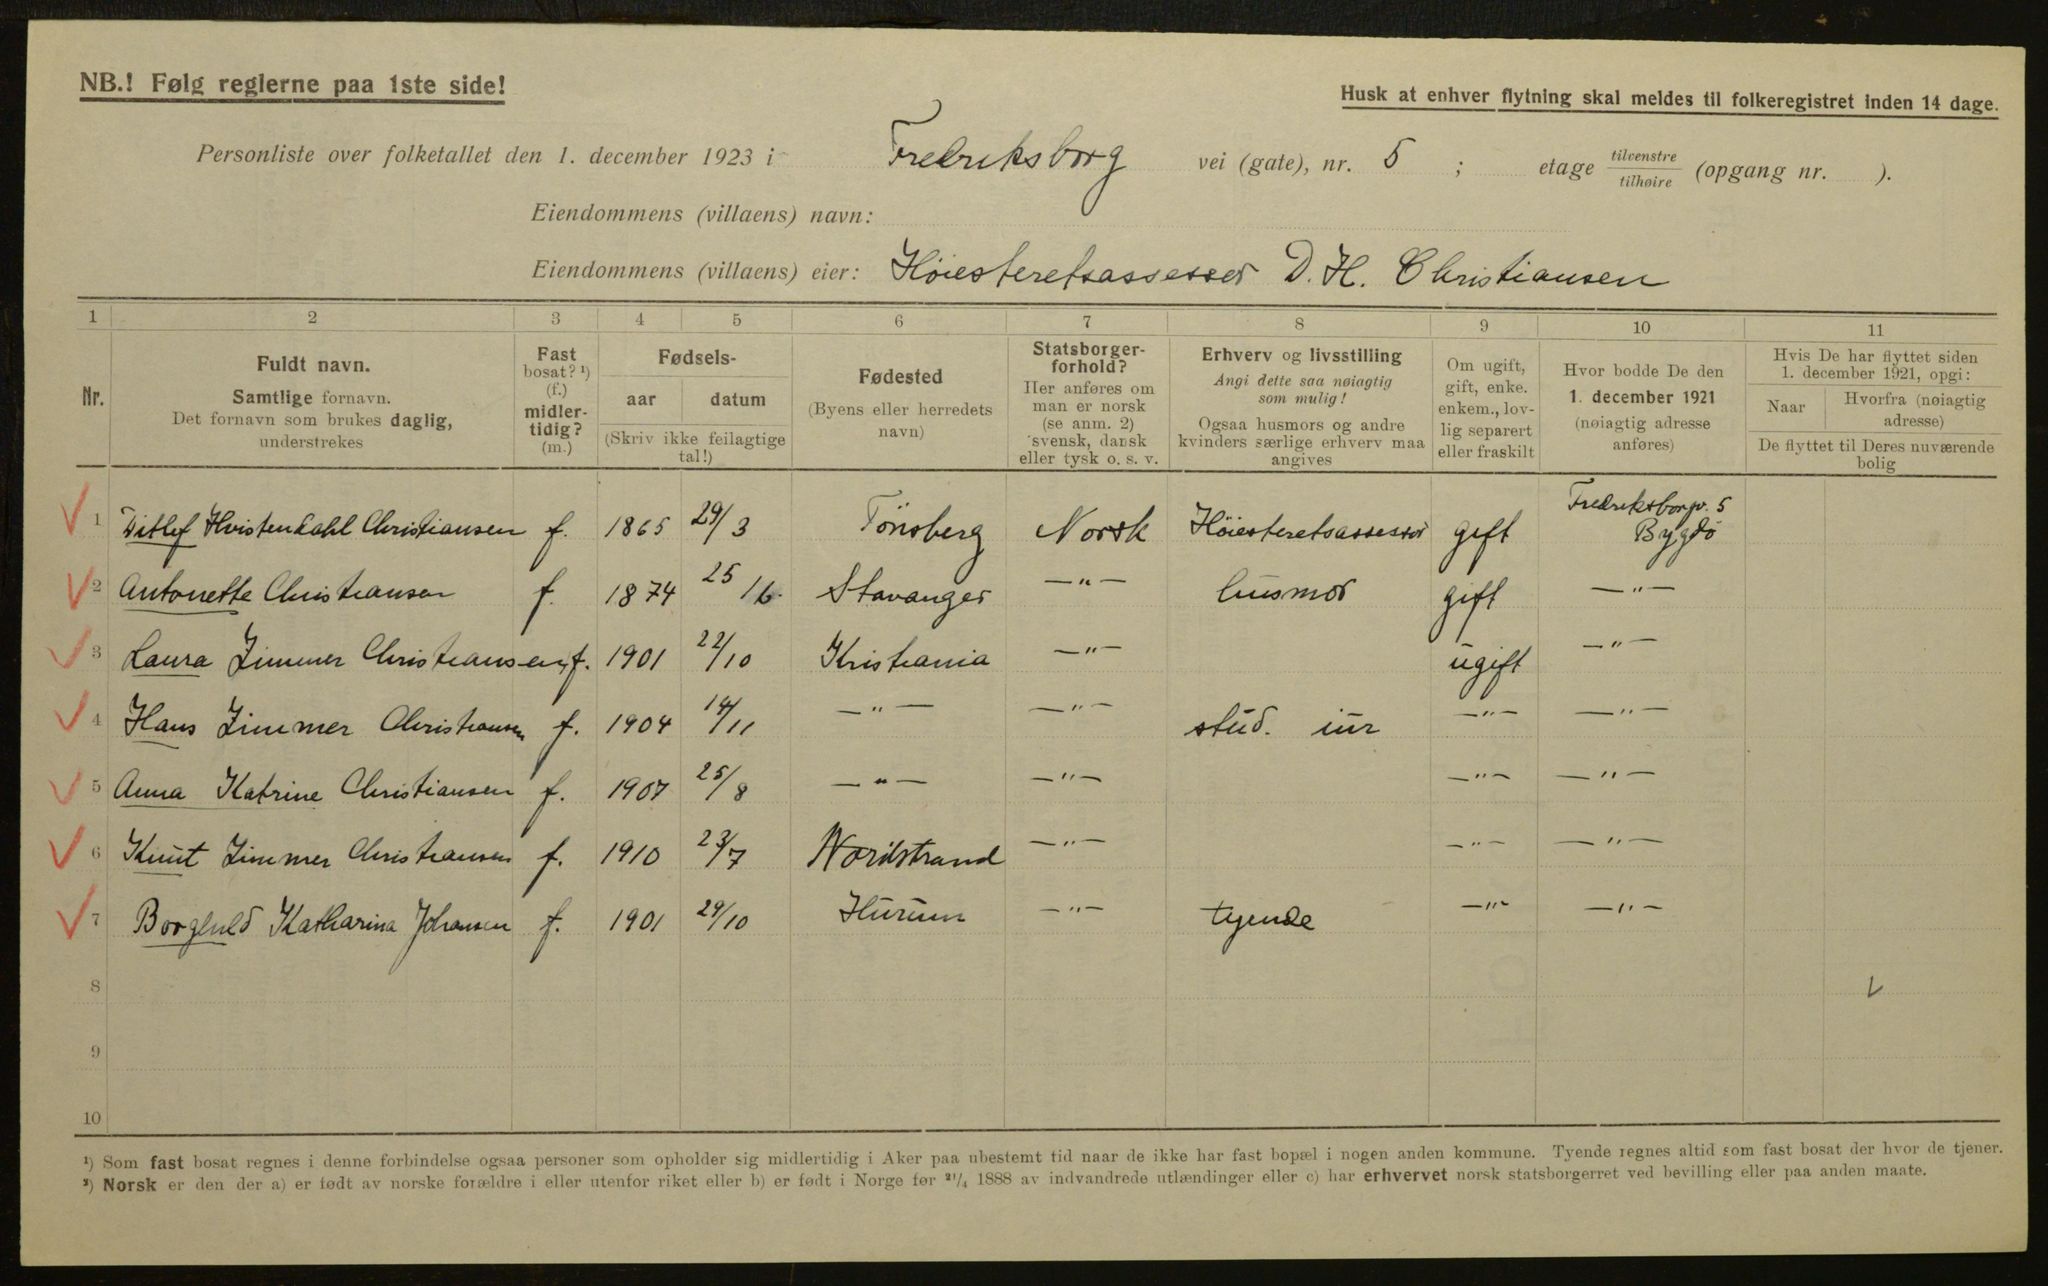 NB.! Følg reglerne paa 1ste side!
Husk at enhver flytning skal meldes til folkeregistret inden 14 dage.
Personliste over folketallet den 1. december 1923 i Fredriksborg vei (gate), nr. 5 ; etage tilvenstre/tilhøire (opgang nr. ).
Eiendommens (villaens) navn:
Eiendommens (villaens) eier: Høiesteretsassessor D. H. Christiansen
1 2 3 4 5 6 7 8 9 10 11
Nr.
Fuldt navn.
Samtlige fornavn.
Det fornavn som brukes daglig,
understrekes
Fast
bosat? ¹)
(f.)
midler-
tidig?
(m.)
Fødsels-
aar datum
(Skriv ikke feilagtige
tal!)
Fødested
(Byens eller herredets
navn)
Statsborger-
forhold?
Her anføres om
man er norsk
(se anm. 2)
svensk, dansk
eller tysk o. s. v.
Erhverv og livsstilling
Angi dette saa nøiagtig
som mulig!
Ogsaa husmors og andre
kvinders særlige erhverv maa
angives
Om ugift,
gift, enke.
enkem., lov-
lig separert
eller fraskilt
Hvor bodde De den
1. december 1921
(nøiagtig adresse
anføres)
Hvis De har flyttet siden
1. december 1921, opgi:
Naar
Hvorfra (nøiagtig
adresse)
De flyttet til Deres nuværende
bolig
1 Ditlef Hvistendahl Christiansen f. 1865 29/3 Tönsberg Norsk Höiesteretsassessor gift Fredriksborgv. 5
Bygdö
2 Antonette Christiansen f. 1874 25/6. Stavanger —"— husmor gift —"—
3 Laura Zimmer Christiansen, f. 1901 22/10 Kristiania —"— ugift —"—
4 Hans Zimmer Christiansen f. 1904 14/11 —"— —"— stud. iur —"— —"—
5 Anna Katrine Christiansen f. 1907 25/8 —"— —"— —"— —"—
6 Knut Zimmer Christiansen f. 1910 23/7 Nordstrand —"— —"— —"—
7 Borghild Katharina Johansen f. 1901 29/10 Hurum —"— tyende —"— —"—
8
9
10
¹) Som fast bosat regnes i denne forbindelse ogsaa personer som opholder sig midlertidig i Aker paa ubestemt tid naar de ikke har fast bopæl i nogen anden kommune. Tyende regnes altid som fast bosat der hvor de tjener.
²) Norsk er den der a) er født av norske forældre i eller utenfor riket eller b) er født i Norge før ²¹/₄ 1888 av indvandrede utlændinger eller c) har erhvervet norsk statsborgerret ved bevilling eller paa anden maate.